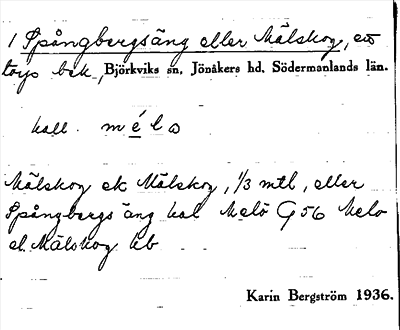 1 Spångbergsäng eller Mälskog,
torp bek., Björkviks sn, Jönåkers hd, Södermanlands län.
kall. méla
Mälskog ek Mälskog, 1/3 mtl, eller
Spångbergs äng kal Melö G 56 Melo
el. Mälskog hb
Karin Bergström 1936.